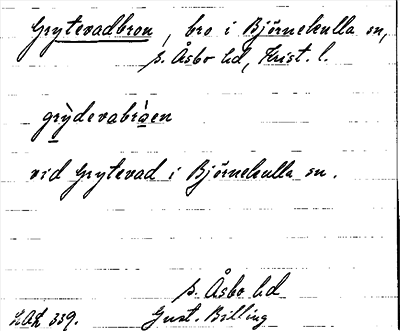 Grytevadbron, bro i Björnekulla sn,
s. Åsbo hd, Krist. l.
grỳdevabràen
vid Grytevad i Björnekulla sn.
s. Åsbo hd
LAL 339. Gust. Billing